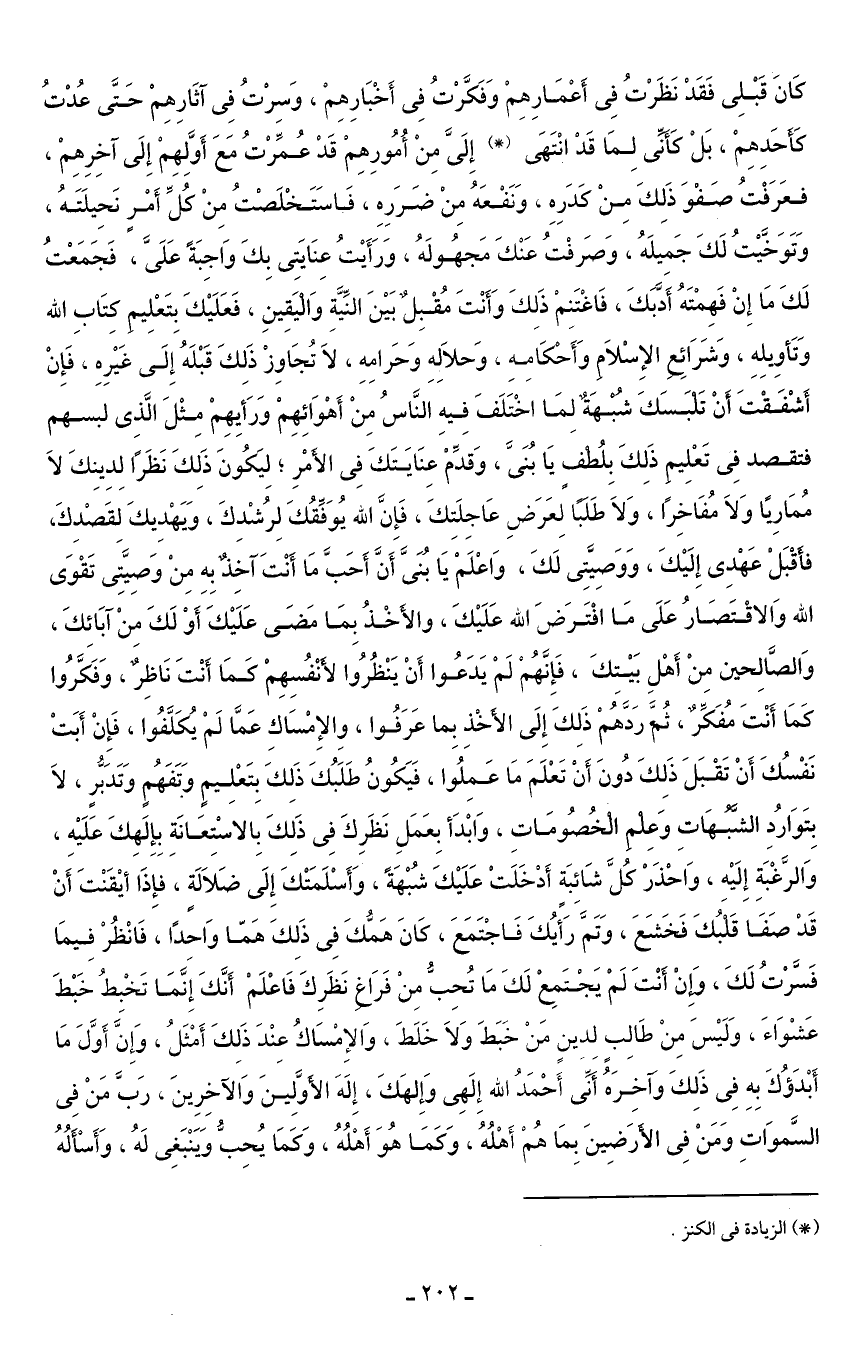 كَانَ قَبْلِى فَقَدْ نَظَرْتُ فِى أَعْمَارِهِمْ وَفَكَّرْتُ فِى أَخْبَارِهِمْ ، وَسِرْتُ فِى آثَارِهِمْ حَتَّى عُدْتُ
كَأَحَدِهِمْ ، بَلْ كَأَنِّى لِمَا قَدْ انْتَهَى (*) إِلَىَّ مِنْ أُمُورِهِمْ قَدْ عُمِّرْتُ مَعَ أَوَّلِهِمْ إِلَى آخِرِهِمْ ،
فَعَرَفْتُ صَفْوَ ذَلِكَ مِنْ كَدَرِهِ ، وَنَفْعَهُ مِنْ ضَرَرِهِ ، فَاسْتَخْلَصْتُ مِنْ كُلِّ أَمْرٍ نَحِيلَتَهُ ،
وَتَوَخَّيْتُ لَكَ جَمِيلَهُ ، وَصَرَفْتُ عَنْكَ مَجْهُولَهُ ، وَرَأَيْتُ عِنَايَتِى بِكَ وَاجِبَةً عَلَىَّ ، فَجَمَعْتُ
لَكَ مَا إِنْ فَهِمْتَهُ أَدَّبَكَ ، فَاغْتَنِمْ ذَلِكَ وَأَنْتَ مُقْبِلٌ بَيْنَ النِّيَّةِ وَالْيَقِينِ ، فَعَلَيْكَ بِتَعْلِيمِ كِتَابِ الله
وَتَأْوِيلِهِ ، وَشَرَائِعِ الإِسْلَامِ وَأَحْكَامِهِ ، وَحَلالِهِ وَحَرَامِهِ ، لاَ تُجَاوِزْ ذَلِكَ قَبْلَهُ إِلَى غَيْرِهِ ، فَإِنْ
أَشْفَقْتَ أَنْ تَلْبَسَكَ شُبْهَةٌ لِمَا اخْتَلَفَ فِيهِ النَّاسُ مِنْ أَهْوَائِهِمْ وَرَأيِهِمْ مِثْلَ الَّذِى لبسهم
فتقصد فِى تَعْلِيمِ ذَلِكَ بِلُطْفٍ يَا بُنَىَّ ، وَقَدِّمْ عِنَايَتَكَ فِى الأَمْرِ ؛ لِيَكُونَ ذَلِكَ نَظَرًا لِدِينِكَ لاَ
مُمَارِيًا وَلاَ مُفَاخِرًا ، وَلاَ طَلَبًا لِعَرَضِ عَاجِلَتِكَ ، فَإِنَّ الله يُوَفِّقُكَ لِرُشْدِكَ ، وَيَهْدِيكَ لِقَصْدِكَ،
فَأَقْبَلْ عَهْدِى إِلَيْكَ ، وَوَصِيَّتِى لَكَ ، وَاعْلَمْ يَا بُنَىَّ أَنَّ أَحَبَّ مَا أَنْتَ آخِذٌ بِهِ مِنْ وَصِيَّتِى تَقْوَى
الله وَالاقْتِصَارُ عَلَى مَا افْتَرَضَ الله عَلَيْكَ ، وَالأَخْذُ بِمَا مَضَى عَلَيْكَ أَوْ لَكَ مِنْ آبَائِكَ ،
وَالصَّالِحِينِ مِنْ أَهْلِ بَيْتِكَ ، فَإِنَّهُمْ لَمْ يَدَعُوا أَنْ يَنْظُرُوا لأَنْفُسِهِمْ كَمَا أَنْتَ نَاظِرٌ ، وَفَكَّرُوا
كَمَا أَنْتَ مُفَكِّرٌ ، ثُمَّ رَدَّهُمْ ذَلِكَ إِلَى الأَخْذِ بِمَا عَرَفُوا ، وَالإِمْسَاكِ عَمَّا لَمْ يُكَلَّفُوا ، فَإِنْ أَبَتْ
نَفْسُكَ أَنْ تَقْبَلَ ذَلِكَ دُونَ أَنْ تَعْلَمَ مَا عَمِلُوا ، فَيَكُونُ طَلَبُكَ ذَلِكَ بِتَعْلِيمٍ وَتَفَهُّمٍ وَتَدَبُّرٍ ، لاَ
بِتَوَارُدِ الشُّبُهَاتِ وَعِلْمِ الْخُصُومَاتِ ، وَابْدَأْ بِعَمَلِ نَظَرِكَ فِى ذَلِكَ بِالاسْتِعَانَةِ بِإِلَهِكَ عَلَيْهِ ،
وَالرَّغْبَةِ إِلَيْهِ ، وَاحْذَرْ كُلَّ شَائِبَةٍ أَدْخَلَتْ عَلَيْكَ شُبْهَةً ، وَأَسْلَمَتْكَ إِلَى ضَلاَلَةٍ ، فَإِذَا أَيْقَنْتَ أَنْ
قَدْ صَفَا قَلْبُكَ فَخَشَعَ ، وَتَمَّ رَأْيُكَ فَاجْتَمَعَ ، كَانَ هَمُّكَ فِى ذَلِكَ هَمّا وَاحِدًا ، فَانْظُرْ فِيمَا
فَسَّرْتُ لَكَ ، وَإِنْ أَنْتَ لَمْ يَجْتَمِعْ لَكَ مَا تُحِبُّ مِنْ فَرَاغِ نَظَرِكَ فَاعْلَمْ أَنَّكَ إِنَّمَا تَخْبِطُ خَبْطَ
عَشْوَاءَ ، وَلَيْسَ مِنْ طَالِبٍ لِدِينٍ مَنْ خَبَطَ وَلاَ خَلَطَ ، وَالإِمْسَاكُ عِنْدَ ذَلِكَ أَمْثَلُ ، وَإِنَّ أَوَّلَ مَا
أَبْدَؤُكَ بِهِ فِى ذَلِكَ وَآخِرَهُ أَنِّى أَحْمَدُ الله إِلَهِى وَإِلَهَكَ ، إِلَهَ الأَوَّلِينَ وَالآخِرِينَ ، رَبَّ مَنْ فِى
السَّموَاتِ وَمَنْ فِى الأَرَضِينَ بِمَا هُمْ أَهْلُهُ ، وَكَمَا هُوَ أَهْلُهُ ، وَكَمَا يُحِبُّ وَيَنْبَغِى لَهُ ، وَأَسْأَلُهُ
(*) الزيادة فى الكنز .
- ٢٠٢ -